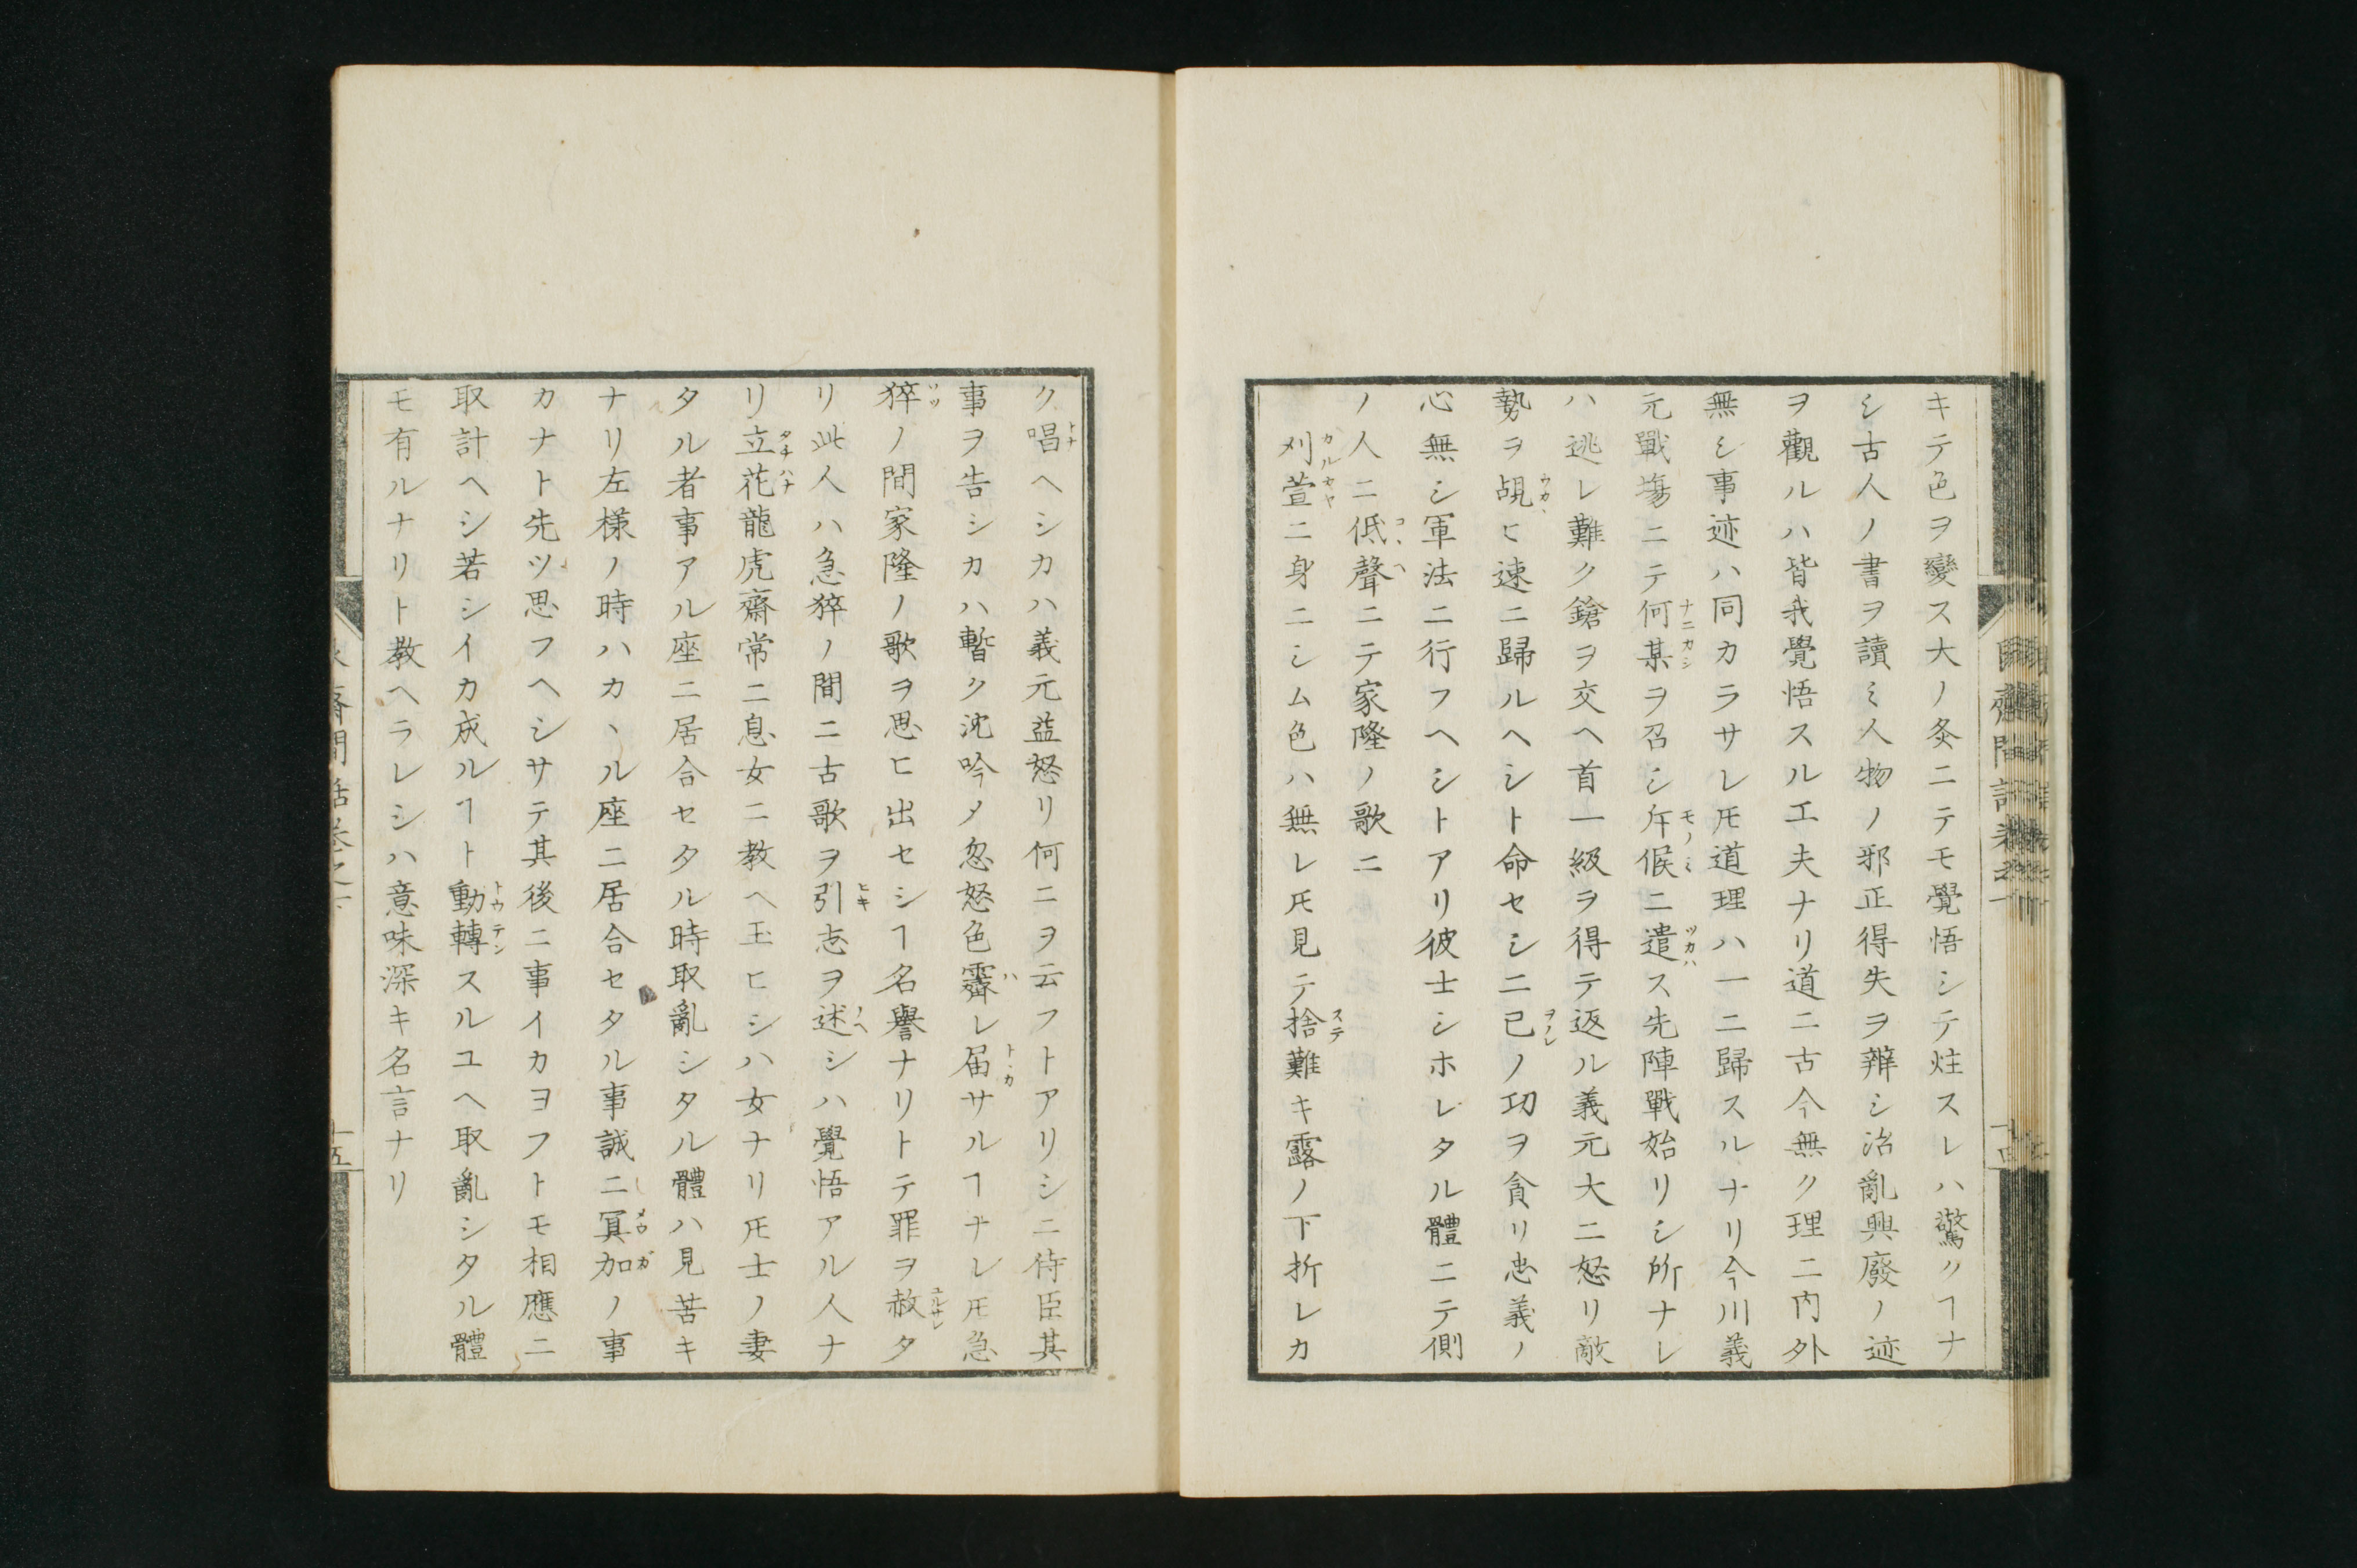 キテ色ヲ變ス大ノ灸ニテモ覺悟シテ炷スレハ驚クヿナ
シ古人ノ書ヲ讀ミ人物ノ邪正得失ヲ辨シ治亂興廢ノ迹
ヲ觀ルハ皆我覺悟スル工夫ナリ道ニ古今無ク理ニ内外
無シ事迹ハ同カラサレ𪜈道理ハ一ニ歸スルナリ今川義
元戰塲ニテ何某ヲ召シ斥候ニ遣ス先陣戰始リシ所ナレ
ハ逃レ難ク鎗ヲ交ヘ首一級ヲ得テ返ル義元大ニ怒リ敵
勢ヲ覘ヒ速ニ歸ルヘシト命セシニ己ノ功ヲ貪リ忠義ノ
心無シ軍法ニ行フヘシトアリ彼士シホレタル體ニテ側
ノ人ニ低聲ニテ家隆ノ歌ニ
刈萱ニ身ニシム色ハ無レ𪜈見テ捨難キ露ノ下折レカ
ク唱ヘシカハ義元益怒リ何ニヲ云フトアリシニ侍臣其
事ヲ告シカハ暫ク沈吟メ忽怒色霽レ届サルヿナレ𪜈急
猝ノ間家隆ノ歌ヲ思ヒ出セシヿ名譽ナリトテ罪ヲ赦タ
リ此人ハ急猝ノ間ニ古歌ヲ引志ヲ述シハ覺悟アル人ナ
リ立花龍虎齋常ニ息女ニ教ヘ玉ヒシハ女ナリ𪜈士ノ妻
タル者事アル座ニ居合セタル時取亂シタル體ハ見苦キ
ナリ左様ノ時ハカヽル座ニ居合セタル事誠ニ冥加ノ事
カナト先ツ思フヘシサテ其後ニ事イカヨフトモ相應ニ
取計ヘシ若シイカ成ルヿト動轉スルユヘ取亂シタル體
モ有ルナリト教ヘラレシハ意味深キ名言ナリ